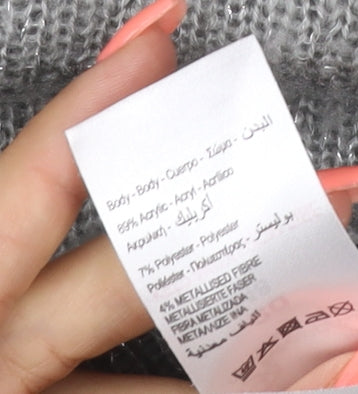 Body - Body - Cuerpo - Σώμα - البدن
89% Acrylic - Acryl - Acrílico
Ακρυλική - أكريليك
7% Polyester - Polyester
Poliéster - Πολυεστέρας - بوليستر
4% METALLISED FIBRE
METALLISIERTE FASER
FIBRA METALIZADA
ΜΕΤΑΛΛΙΖΕ ΙΝΑ
الياف معدنية